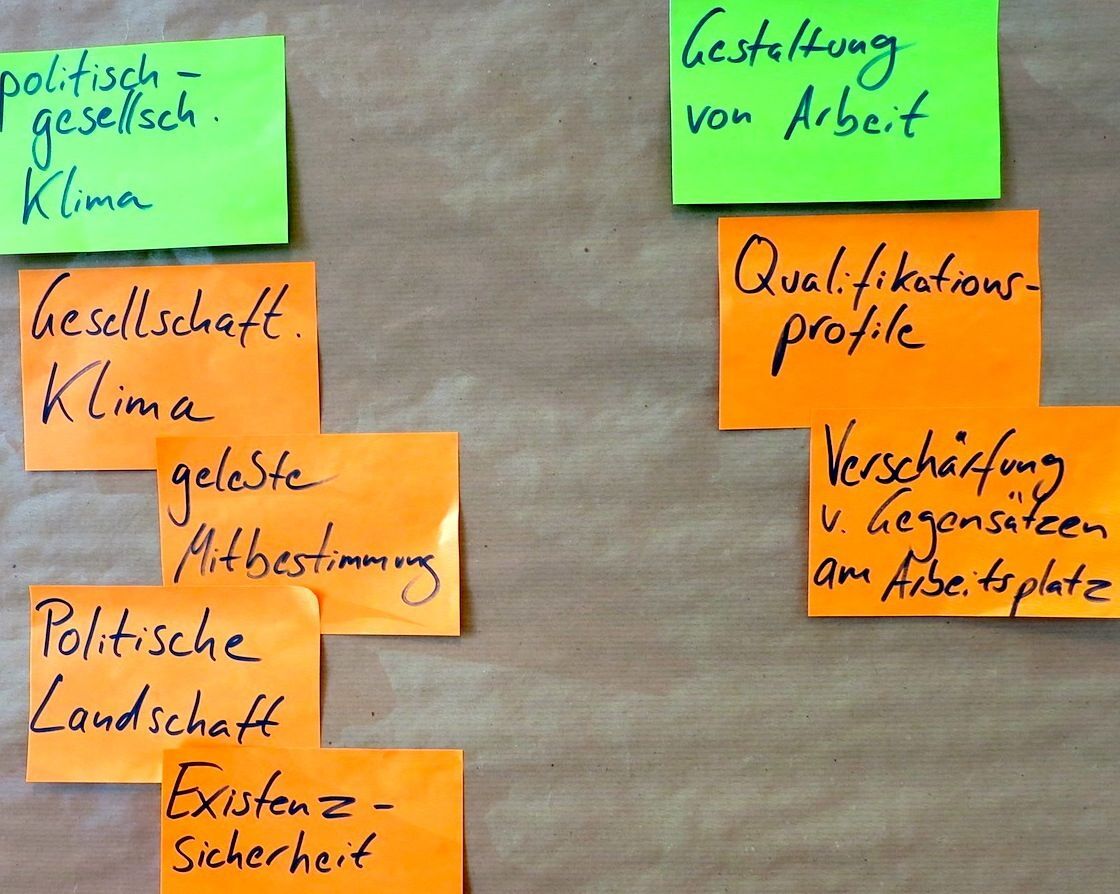 politisch-
gesellsch.
Klima
Gesellschaft.
Klima
gelebte
Mitbestimmung
Politische
Landschaft
Existenz-
sicherheit
Gestaltung
von Arbeit
Qualifikations-
profile
Verschärfung
v. Gegensätzen
am Arbeitsplatz